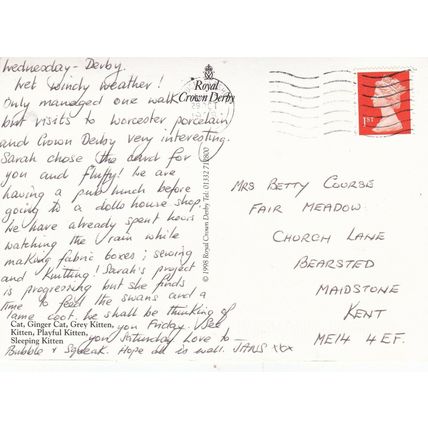 Wednesday - Derby.
Wet windy weather!
Only managed one walk
but visits to Worcester porcelain
and Crown Derby very interesting.
Sarah chose the card for
you and fluffy! We are
having a pub lunch before
going to a dolls house shop.
We have already spent hours
watching the rain while
making fabric boxes; sewing
and knitting! Sarah's project
is progressing but she finds
time to feed the swans and a
tame coot. We shall be thinking of
you Friday. See
you Saturday Love to -
Bubble & Squeak. Hope all is well. JANS xxx
Cat, Ginger Cat, Grey Kitten,
Kitten, Playful Kitten,
Sleeping Kitten
Royal
Crown Derby
© 1998 Royal Crown Derby Tel: 01332 712800
1ST
MRS BETTY COURSE
FAIR MEADOW
CHURCH LANE
BEARSTED
MAIDSTONE
KENT
ME14 4EF.